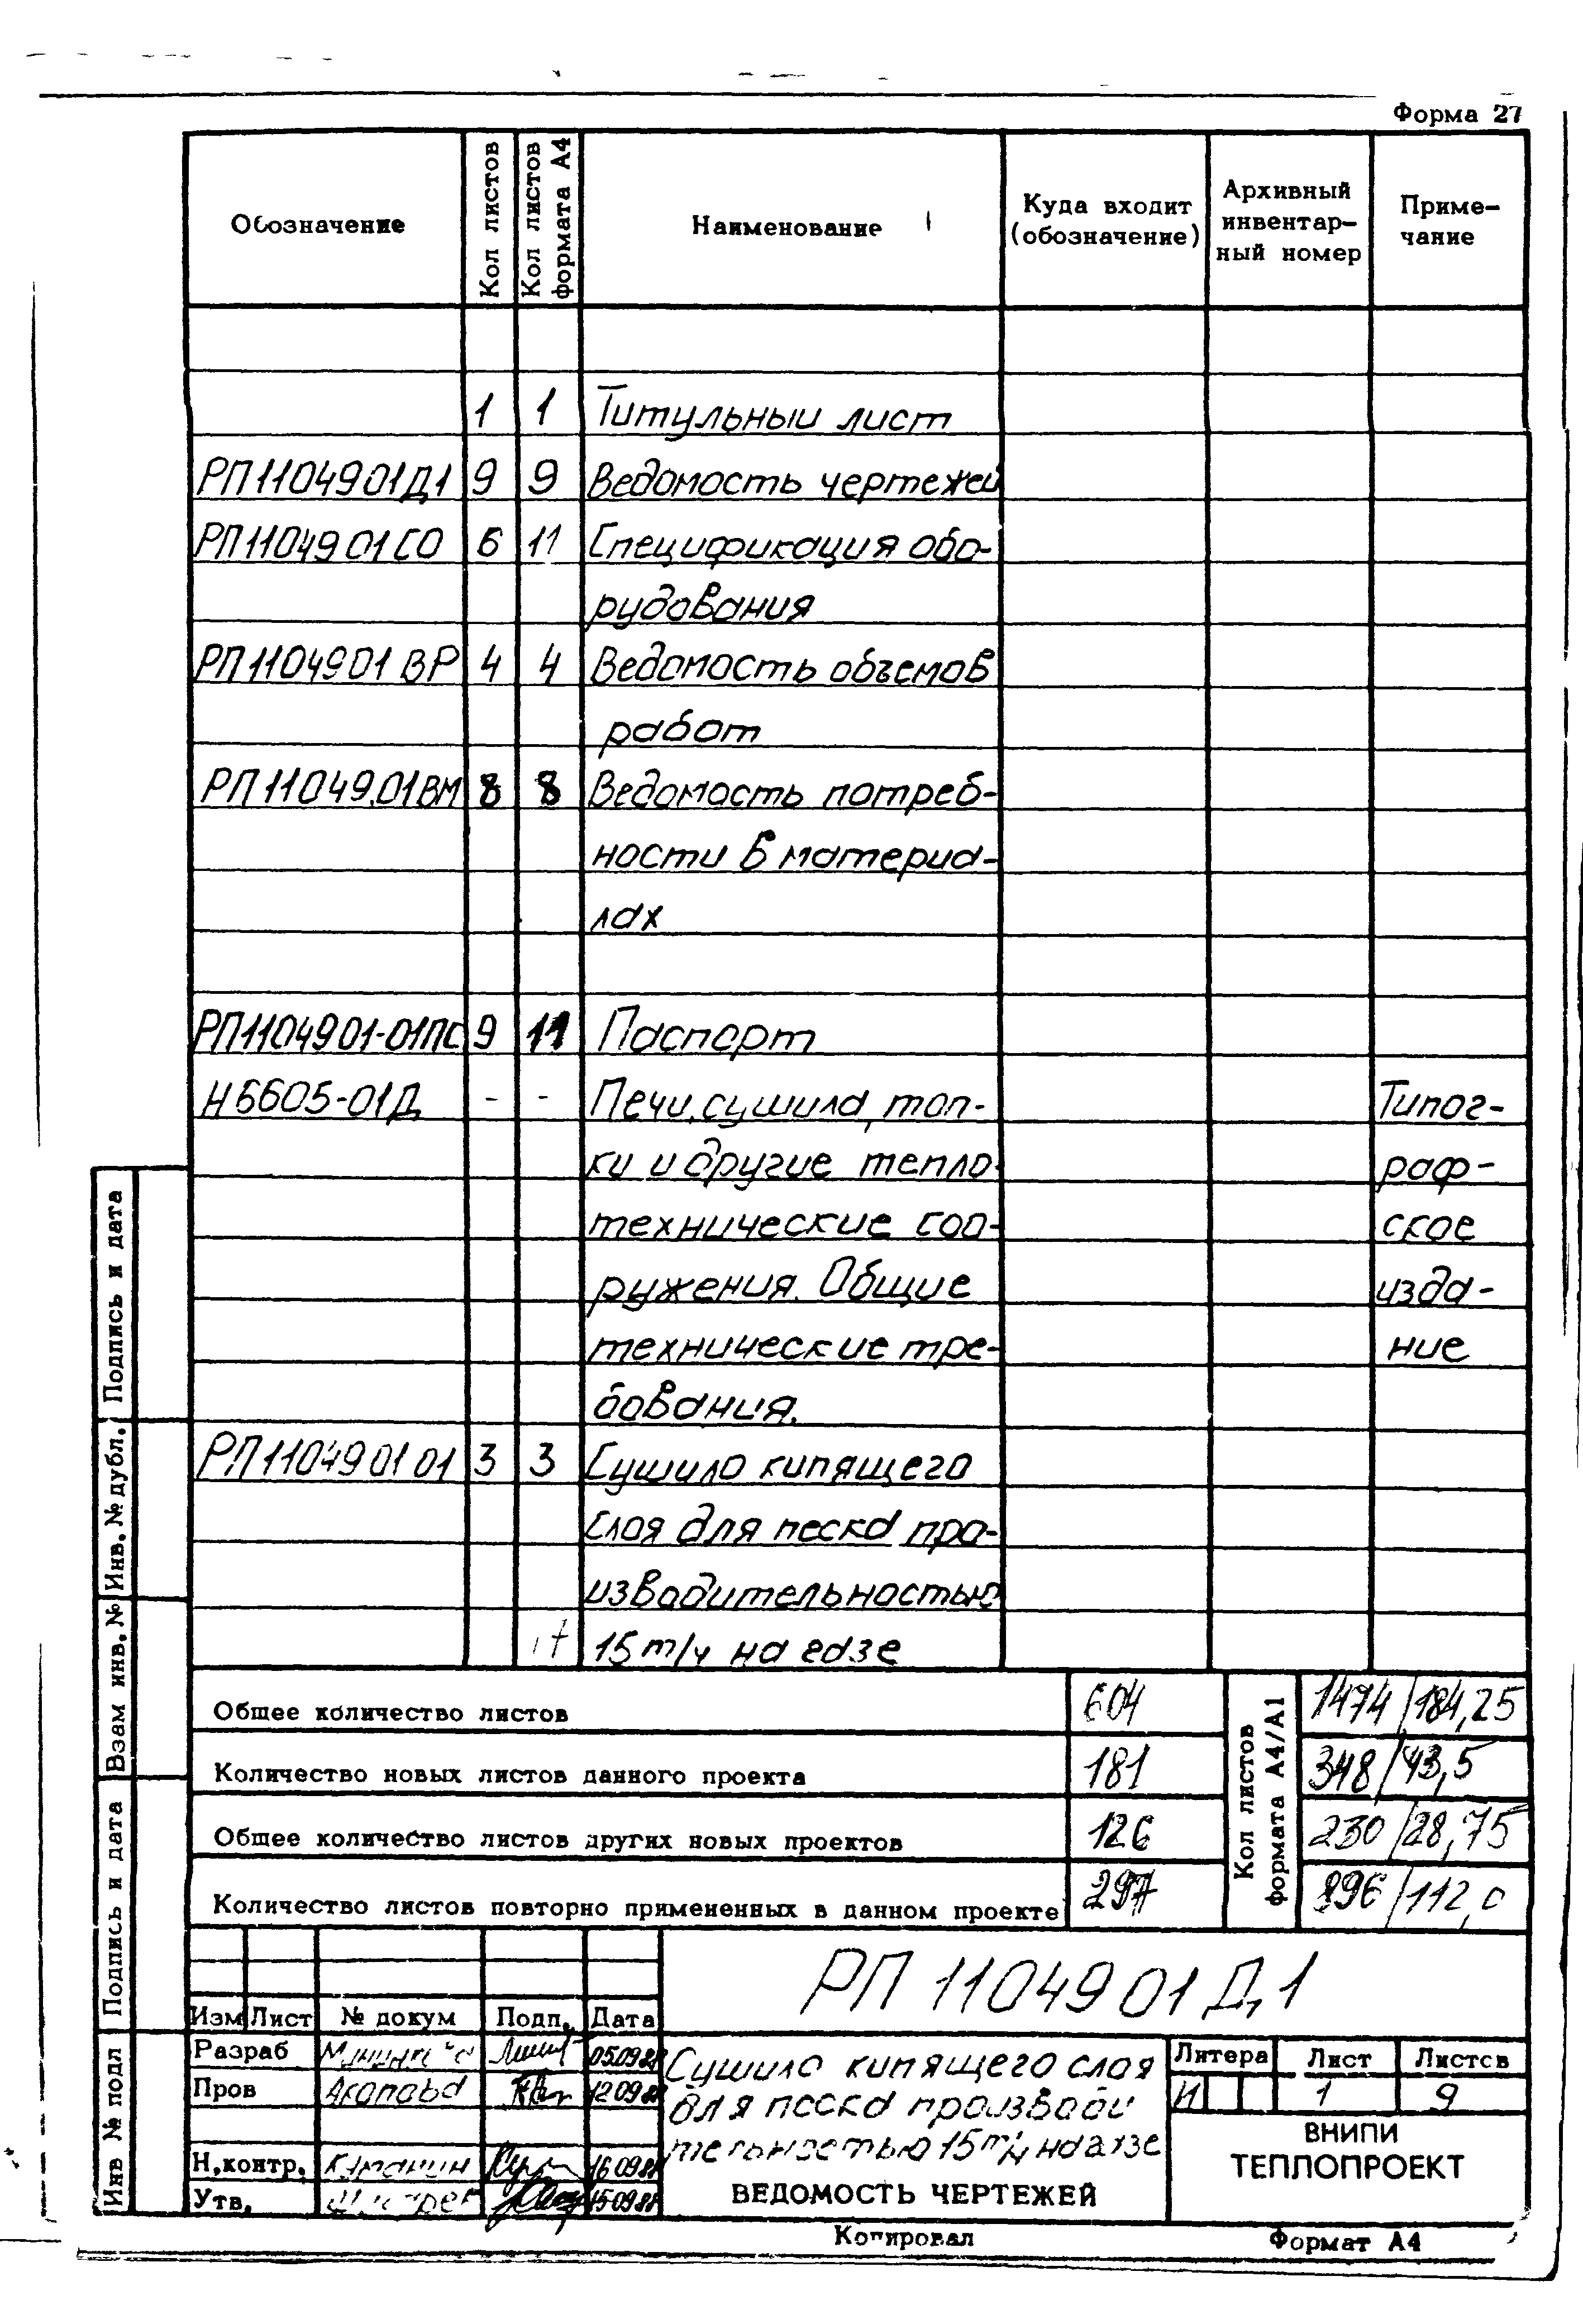 Форма 27
Обозначение Кол листов Кол листов формата А4 Наименование Куда входит (обозначение) Архивный инвентар-ный номер Приме-чание
1 1 Титульный лист
РП1104901Д1 9 9 Ведомость чертежей
РП1104901СО 6 11 Спецификация обо-
рудования
РП1104901 ВР 4 4 Ведомость объемов
работ
РП11049.01ВМ 8 8 Ведомость потреб-
ности в материа-
лах
РП1104901-01ПС 9 11 Паспорт
Н6605-01Д - - Печи, сушила, топ- Типог-
ки и другие тепло- раф-
технические соо- ское
ружения. Общие изда-
технические тре- ние
бования.
РП110490101 3 3 Сушило кипящего
слоя для песка про-
изводительностью
15 т/ч на газе
Общее количество листов 604 Кол листов формата А4/А1 1474/184,25
Количество новых листов данного проекта 181 348/43,5
Общее количество листов других новых проектов 126 230/28,75
Количество листов повторно примененных в данном проекте 297 896/112,0
РП 1104901Д1
Изм Лист № докум Подп. Дата
Разраб 05.09.88
Пров Акопова 12.09.88
Н.контр. 16.09.88
Утв. 15.09.88
Сушило кипящего слоя
для песка производи
тельностью 15 т/ч на газе
ВЕДОМОСТЬ ЧЕРТЕЖЕЙ
Литера Лист Листов
И 1 9
ВНИПИ
ТЕПЛОПРОЕКТ
Копировал Формат А4
Подпись и дата
Инв. № дубл.
Взам инв. №
Подпись и дата
Инв № подл